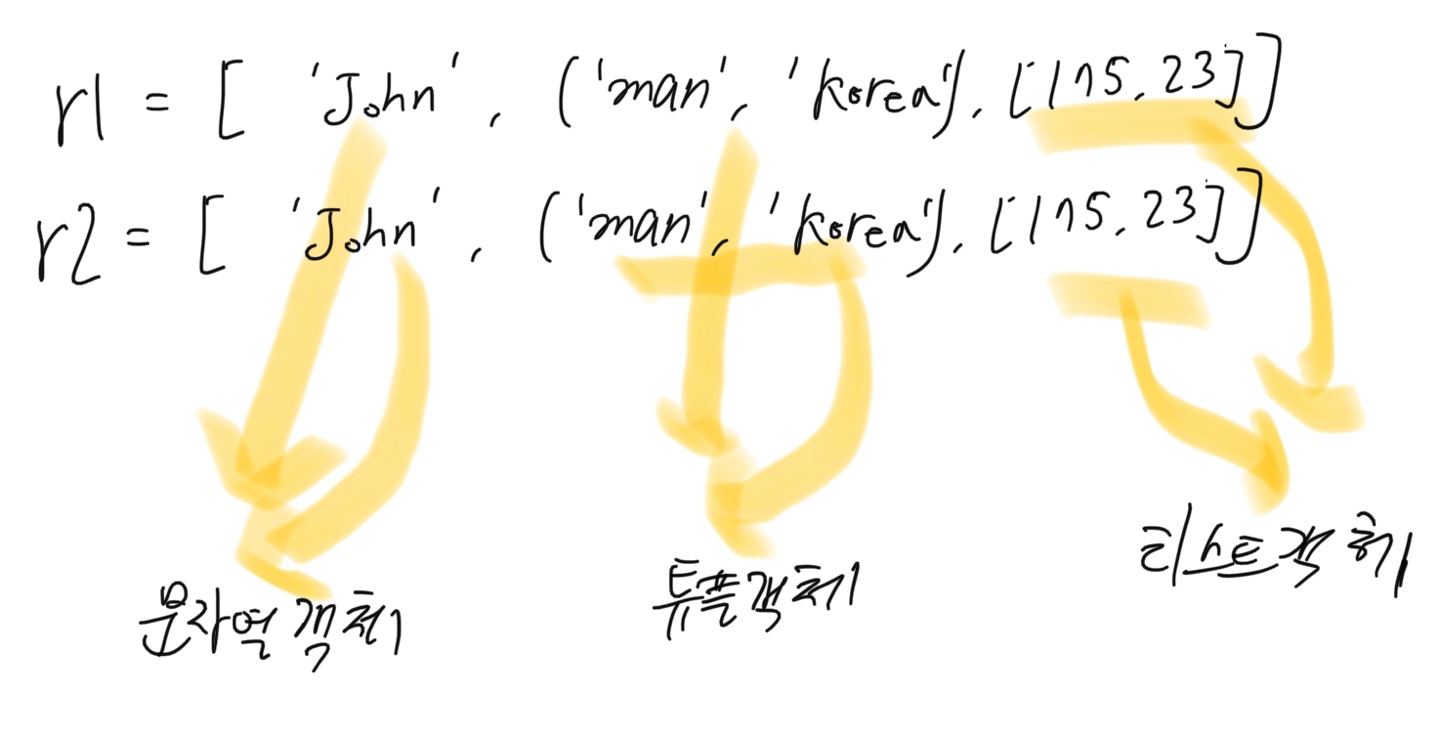 r1 = [ 'John', ('man', 'korea'), [175, 23]]
r2 = [ 'John', ('man', 'korea'), [175, 23]]
문자열 객체 튜플객체 리스트객체